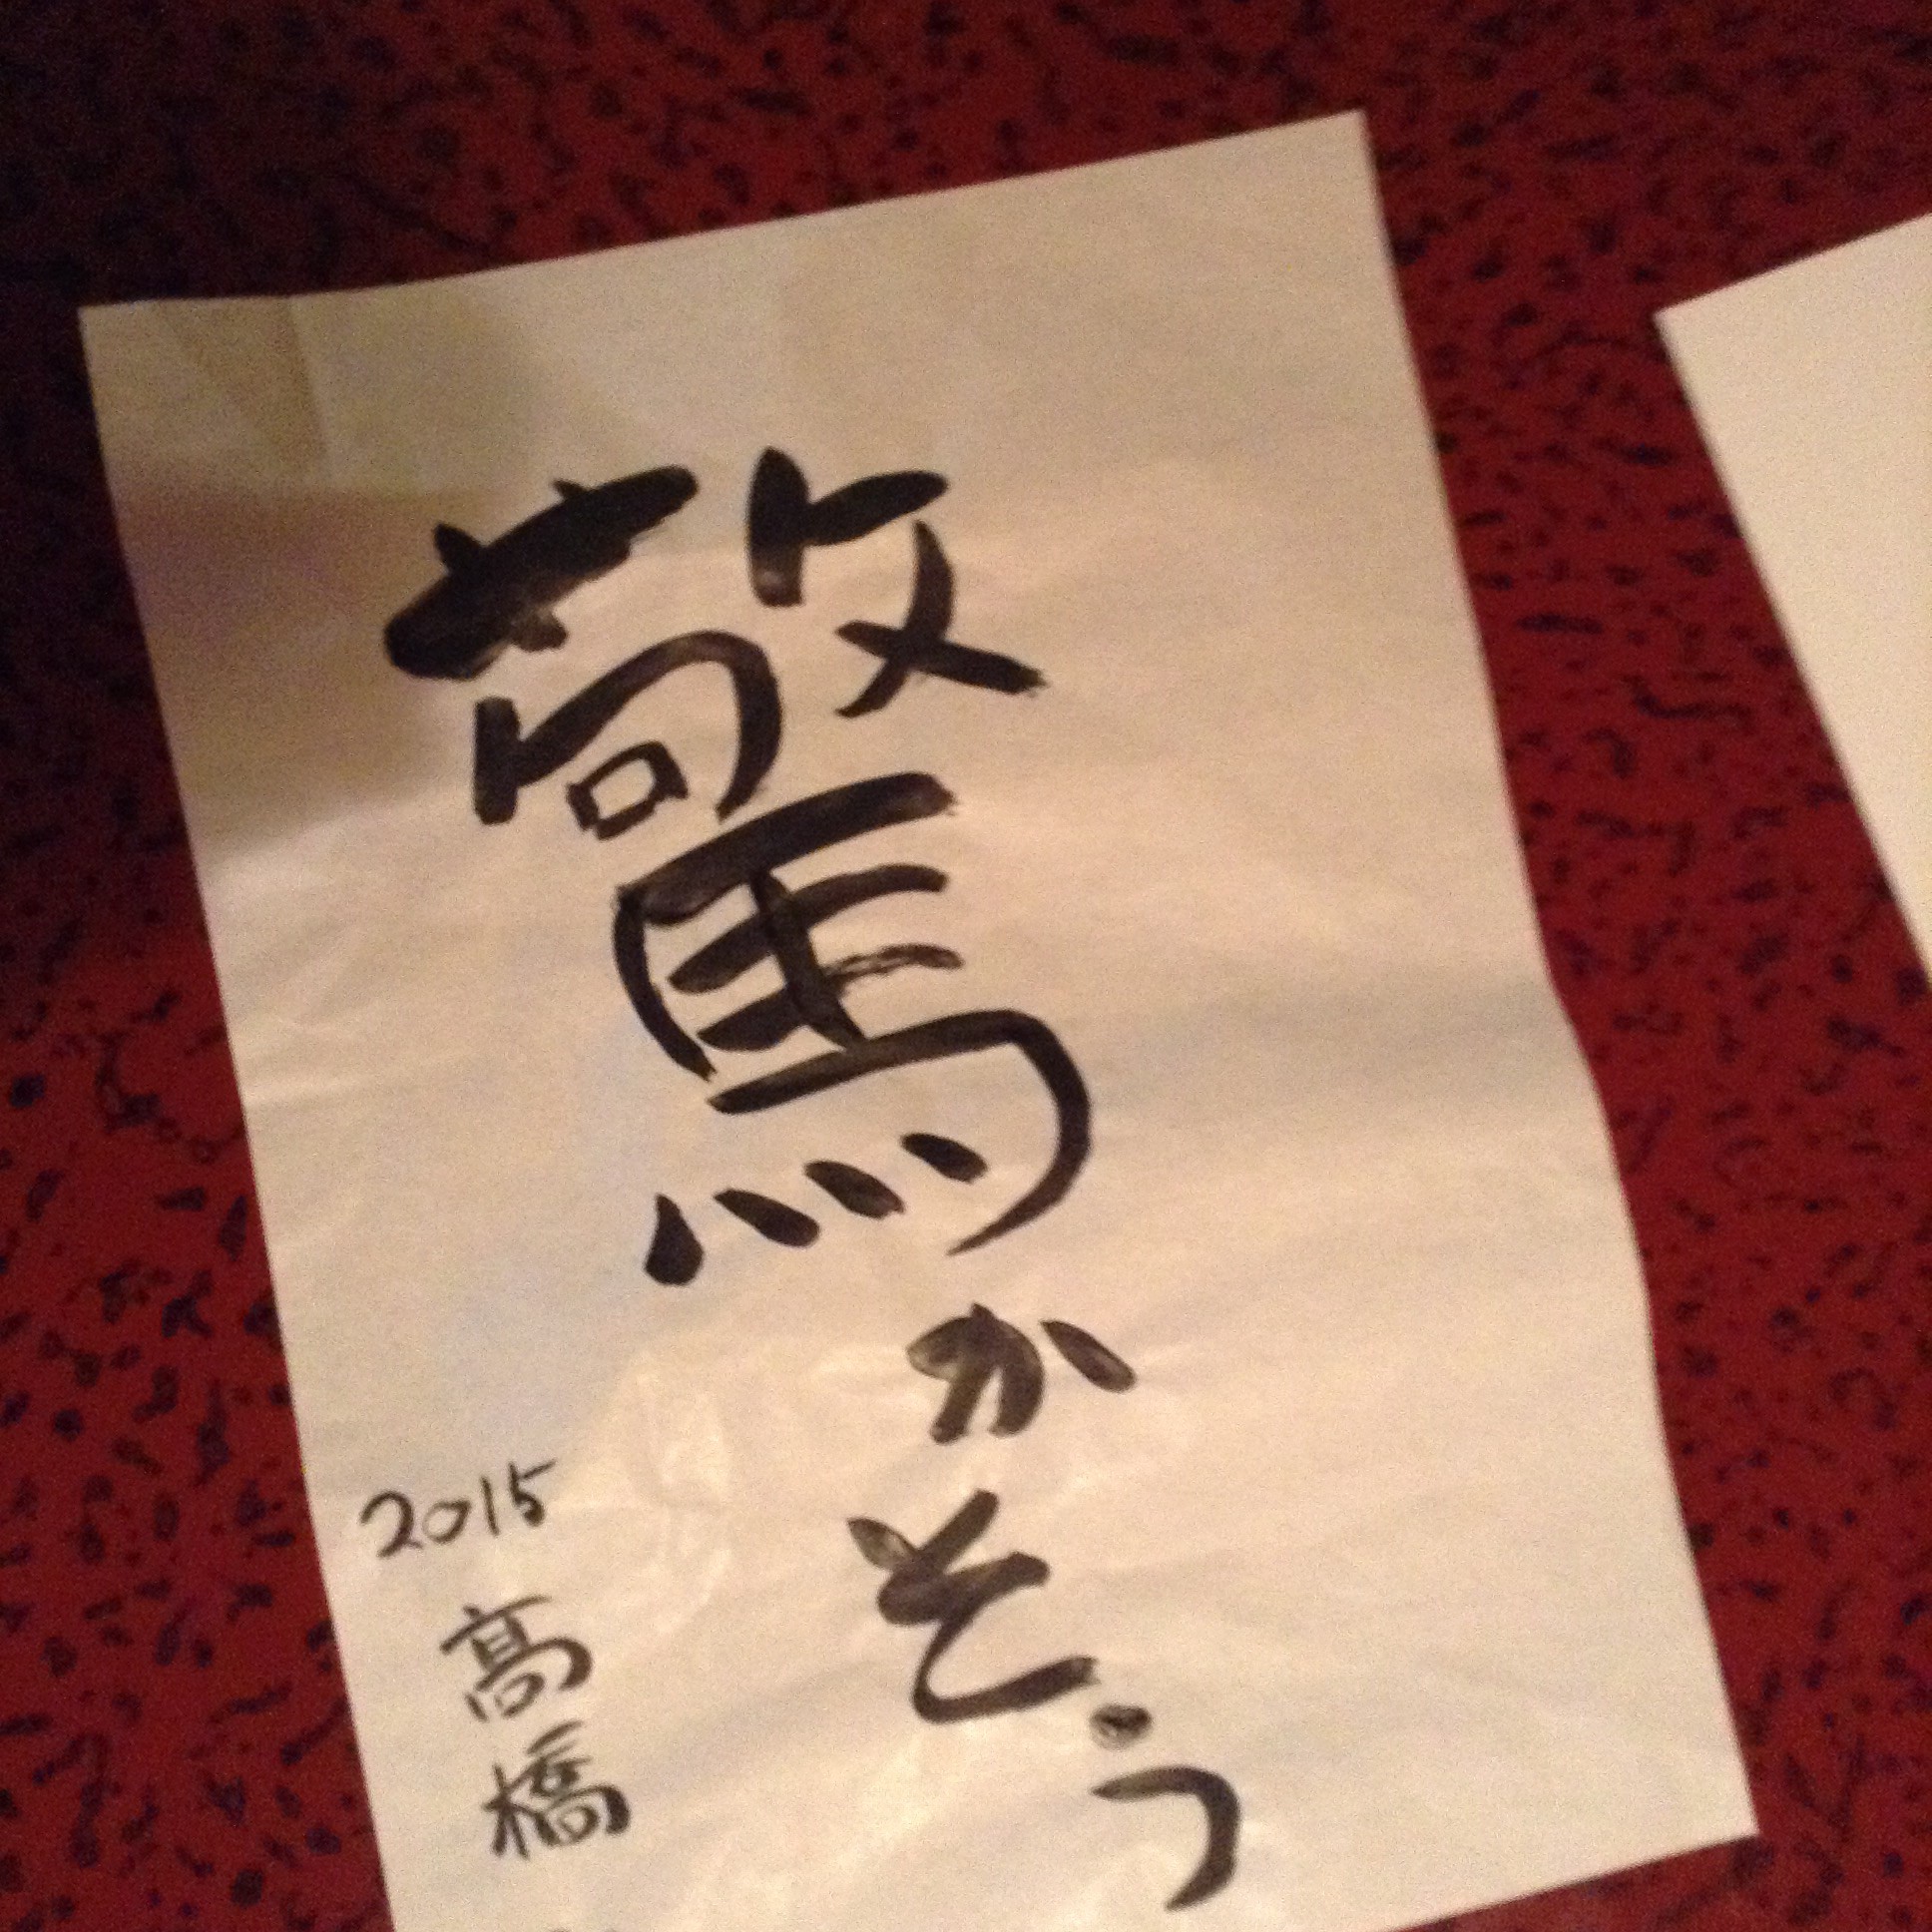 驚かそう
2015
髙橋